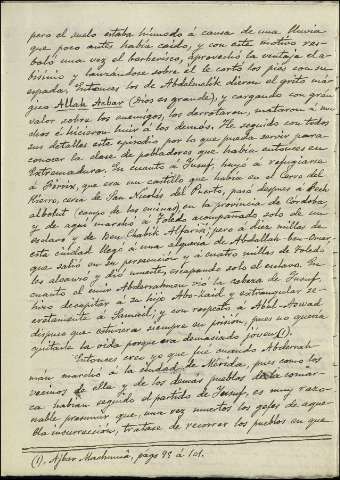 pero el suelo estaba húmedo á causa de una lluvia
que poco antes había caido, y con este motivo res-
baló una vez el berberisco, aprovechó la ventaja el a-
bisinio y lanzándose sobre él le cortó los piés con su
espada. Entonces los de Abdelmalik dieron el grito má-
gico Allah Acbar (Dios es grande); y cargando con gran
valor sobre los enemigos, los derrotaron, mataron á mu-
chos é hicieron huir á los demás. He seguido con todos
sus detalles este episodio por lo que pueda servir para
conocer la clase de pobladores que había entonces en
Extremadura. En cuanto á Yusuf, huyó á refugiarse
á Férrix, que era un castillo que había en el Cerro del
Hierro, cerca de San Nicolás del Puerto, pasó después á Fech
albolut (campo de las encinas) en la provincia de Córdoba,
y de aquí marchó á Toledo acompañado solo de un
esclavo y de Ben Chabik Alfarsi; pero á diez millas de
esta ciudad llegó á una alquería de Abdallah-ben-Omar,
que salió en su persecución y á cuatro millas de Toledo
los alcanzó y dió muerte, escapando solo el esclavo. En
cuanto el emir Abderrahman vió la cabeza de Yusuf,
hizo decapitar á su hijo Abo-Zaid y extrangular se-
cretamente á Samail; y con respecto á Abul-Aswad
dispuso que estuviera siempre en prisión, pues no quería
quitarle la vida porque era demasiado jóven (1).
Entonces creo yo que fué cuando Abderrah-
mán marchó á la ciudad de Mérida, pues como los
vecinos de ella y de los demás pueblos de la comar-
ca habían seguido el partido de Yusuf, es muy razo-
nable presumir que, una vez muertos los gefes de aque-
lla insurrección, tratase de recorrer los pueblos en que
(1). Ajbar Machmuâ, pags 93 á 101.